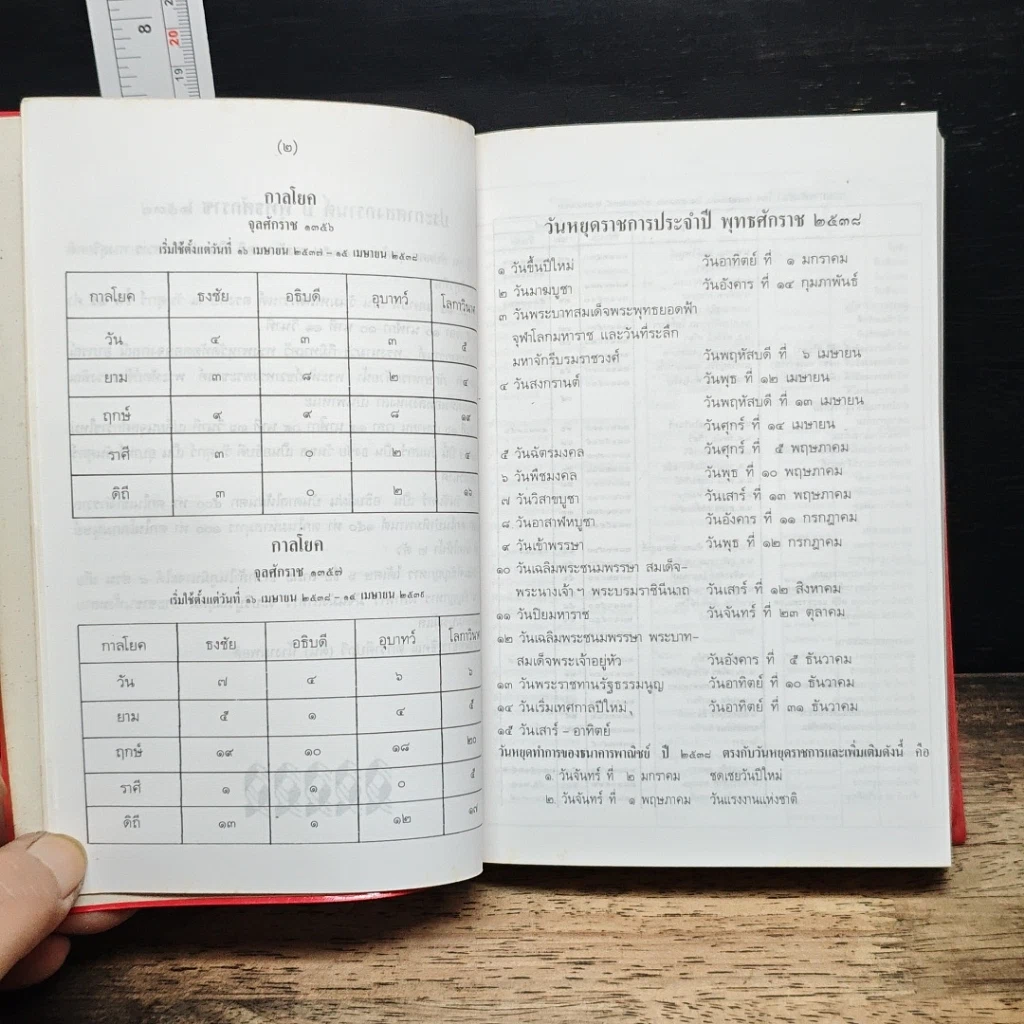 8
20
19
(๒)
กาลโยค
จุลศักราช ๑๓๕๖
เริ่มใช้ตั้งแต่วันที่ ๑๖ เมษายน ๒๕๓๗ – ๑๕ เมษายน ๒๕๓๘
กาลโยค ธงชัย อธิบดี อุบาทว์ โลกาวินาศ
วัน ๔ ๓ ๓ ๕
ยาม ๓ ๘ ๒ ๔
ฤกษ์ ๙ ๙ ๘ ๑๕
ราศี ๓ ๐ ๒ ๔
ดิถี ๓ ๐ ๒ ๑๖
กาลโยค
จุลศักราช ๑๓๕๗
เริ่มใช้ตั้งแต่วันที่ ๑๖ เมษายน ๒๕๓๘ – ๑๕ เมษายน ๒๕๓๙
กาลโยค ธงชัย อธิบดี อุบาทว์ โลกาวินาศ
วัน ๗ ๔ ๖ ๖
ยาม ๕ ๑ ๔ ๕
ฤกษ์ ๑๙ ๑๐ ๑๘ ๒๐
ราศี ๑ ๑ ๐ ๕
ดิถี ๑๓ ๑ ๑๒ ๑๗
วันหยุดราชการประจำปี พุทธศักราช ๒๕๓๘
๑ วันขึ้นปีใหม่ วันอาทิตย์ ที่ ๑ มกราคม
๒ วันมาฆบูชา วันอังคาร ที่ ๑๔ กุมภาพันธ์
๓ วันพระบาทสมเด็จพระพุทธยอดฟ้า
จุฬาโลกมหาราช และวันที่ระลึก
มหาจักรีบรมราชวงศ์ วันพฤหัสบดี ที่ ๖ เมษายน
๔ วันสงกรานต์ วันพุธ ที่ ๑๒ เมษายน
วันพฤหัสบดี ที่ ๑๓ เมษายน
วันศุกร์ ที่ ๑๔ เมษายน
๕ วันฉัตรมงคล วันศุกร์ ที่ ๕ พฤษภาคม
๖ วันพืชมงคล วันพุธ ที่ ๑๐ พฤษภาคม
๗ วันวิสาขบูชา วันเสาร์ ที่ ๑๓ พฤษภาคม
๘ วันอาสาฬหบูชา วันอังคาร ที่ ๑๑ กรกฎาคม
๙ วันเข้าพรรษา วันพุธ ที่ ๑๒ กรกฎาคม
๑๐ วันเฉลิมพระชนมพรรษา สมเด็จ–
พระนางเจ้าฯ พระบรมราชินีนาถ วันเสาร์ ที่ ๑๒ สิงหาคม
๑๑ วันปิยมหาราช วันจันทร์ ที่ ๒๓ ตุลาคม
๑๒ วันเฉลิมพระชนมพรรษา พระบาท–
สมเด็จพระเจ้าอยู่หัว วันอังคาร ที่ ๕ ธันวาคม
๑๓ วันพระราชทานรัฐธรรมนูญ วันอาทิตย์ ที่ ๑๐ ธันวาคม
๑๔ วันเริ่มเทศกาลปีใหม่ วันอาทิตย์ ที่ ๓๑ ธันวาคม
๑๕ วันเสาร์ – อาทิตย์
วันหยุดทำการของธนาคารพาณิชย์ ปี ๒๕๓๘ ตรงกับวันหยุดราชการและเพิ่มเติมดังนี้ คือ
๑. วันจันทร์ ที่ ๒ มกราคม ชดเชยวันปีใหม่
๒. วันจันทร์ ที่ ๑ พฤษภาคม วันแรงงานแห่งชาติ